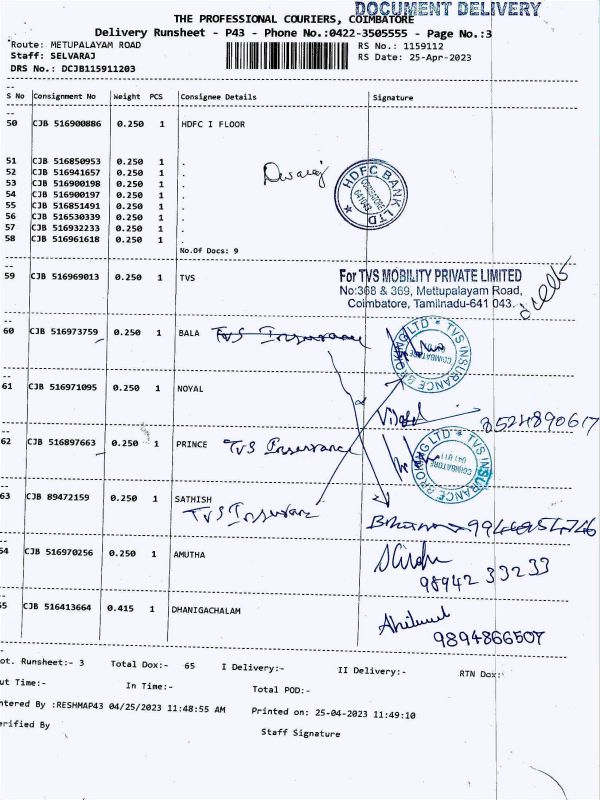 DOCUMENT DELIVERY
THE PROFESSIONAL COURIERS, COIMBATORE
Delivery Runsheet - P43 - Phone No.:0422-3505555 - Page No.:3
Route: METUPALAYAM ROAD
RS No.: 1159112
Staff: SELVARAJ
RS Date: 25-Apr-2023
DRS No.: DCJB115911203
S No Consignment No Weight PCS Consignee Details Signature
50 CJB 516900886 0.250 1 HDFC I FLOOR
51 CJB 516850953 0.250 1 .
52 CJB 516941657 0.250 1 .
53 CJB 516900198 0.250 1 .
54 CJB 516900197 0.250 1 .
55 CJB 516851491 0.250 1 .
56 CJB 516530339 0.250 1 .
57 CJB 516932233 0.250 1 .
58 CJB 516961618 0.250 1 .
HDFC BANK LTD
COIMBATORE
641043
No.Of Docs: 9
59 CJB 516969013 0.250 1 TVS
For TVS MOBILITY PRIVATE LIMITED
No:368 & 369, Mettupalayam Road,
Coimbatore, Tamilnadu-641 043.
60 CJB 516973759 0.250 1 BALA TVS Insurance
TVS INSURANCE BROKING LTD
COIMBATORE
61 CJB 516971095 0.250 1 NOYAL
8524890617
62 CJB 516897663 0.250 1 PRINCE TVS Insurance
TVS INSURANCE BROKING LTD
COIMBATORE
641 011
63 CJB 89472159 0.250 1 SATHISH
TVS Insuranc
64 CJB 516970256 0.250 1 AMUTHA
98942 33233
65 CJB 516413664 0.415 1 DHANIGACHALAM
9894866507
ot. Runsheet:- 3 Total Dox:- 65 I Delivery:- II Delivery:- RTN Dox:
ut Time:- In Time:- Total POD:-
ntered By :RESHMAP43 04/25/2023 11:48:55 AM Printed on: 25-04-2023 11:49:10
erified By Staff Signature